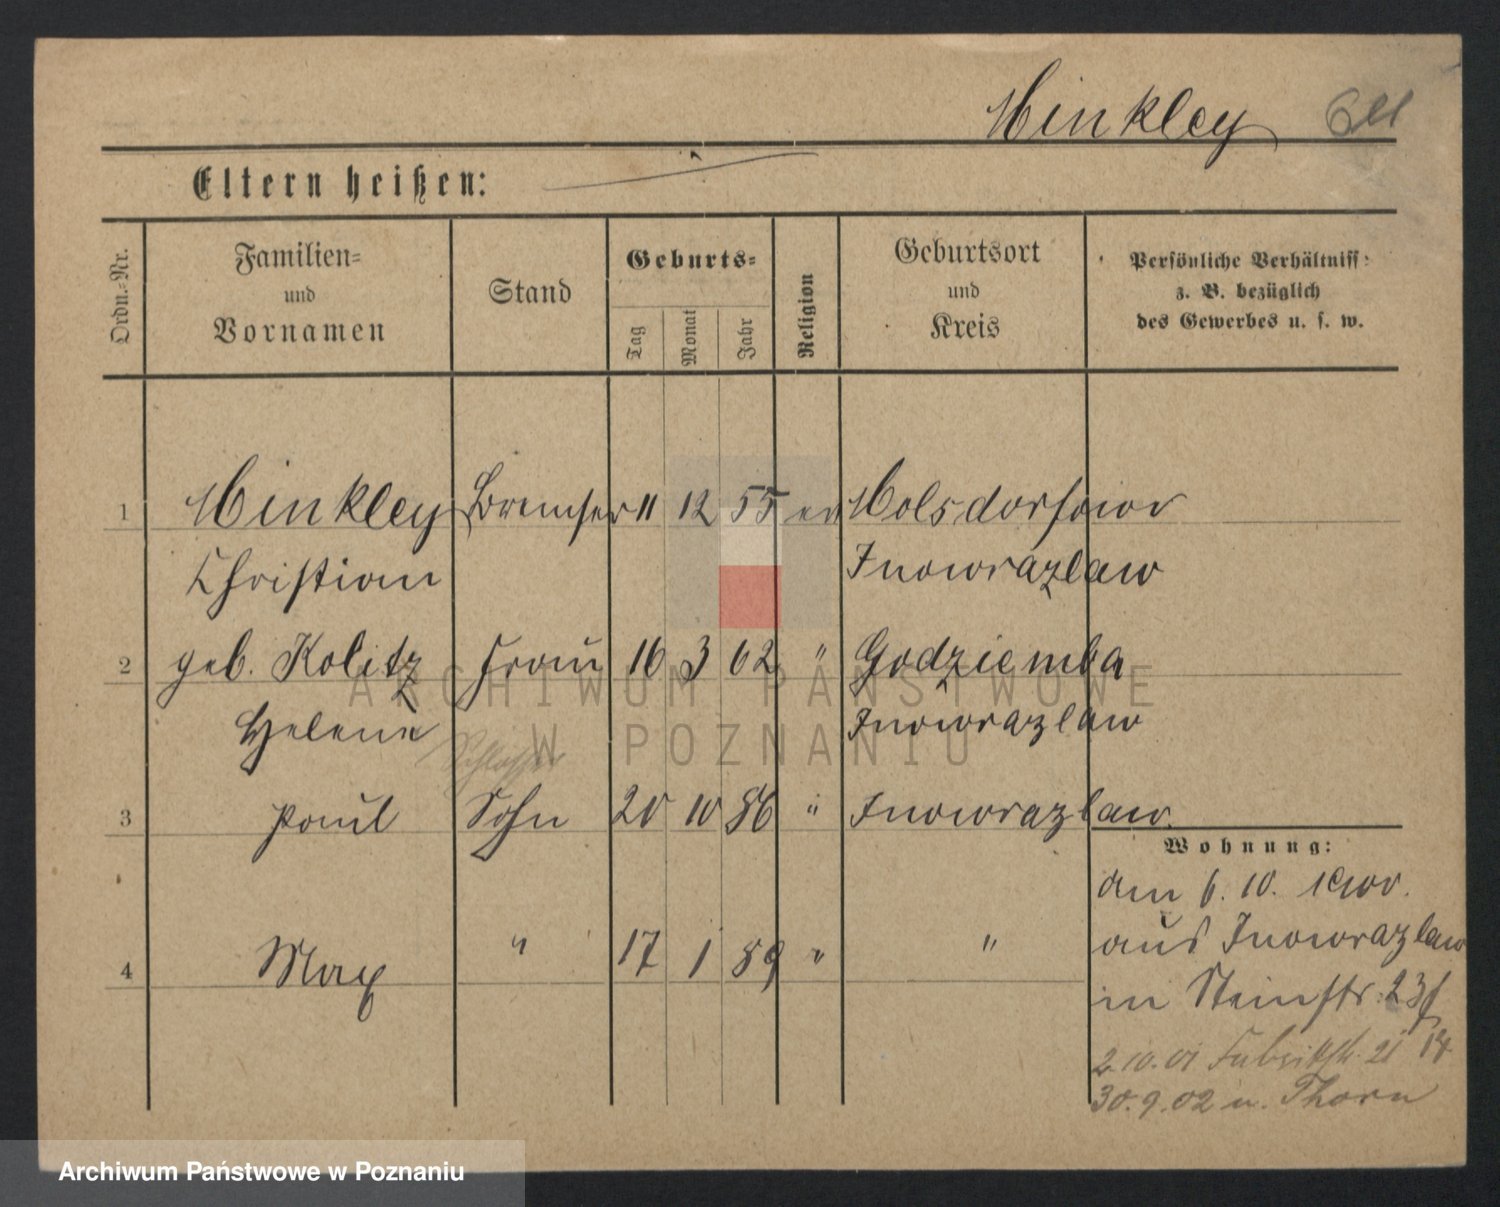 Minkley
Eltern heißen:
Ordn.-Nr.
Familien-
und
Vornamen
Stand
Geburts-
Tag
Monat
Jahr
Religion
Geburtsort
und
Kreis
Persönliche Verhältniss
z. B. bezüglich
des Gewerbes u. s. w.
1 Minkley Bremser 11 12 55 ev
Christian Inowrazlaw
2 geb. Kolitz Frau 16 3 62 " Godziemba
Helene Inowrazlaw
Schlosser
3 Paul Sohn 20 10 86 " Inowrazlaw.
Wohnung:
am 6. 10. 1900.
aus Inowrazlaw
4 Max " 17 1 89 " "
in Steinstr. 23
2.10.01 Fabrikstr. 21
30.9.02 n. Thorn
ARCHIWUM PAŃSTWOWE
W POZNANIU
Archiwum Państwowe w Poznaniu